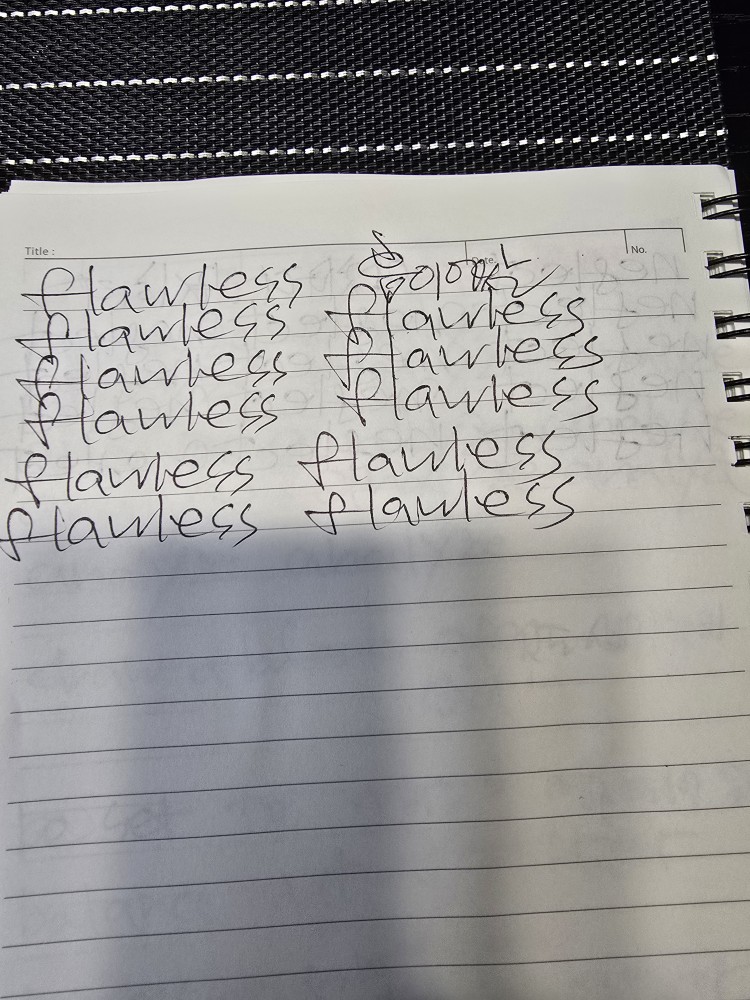 Title : Date No.
flawless
flawless flawless
flawless flawless
flawless flawless
flawless flawless
flawless flawless